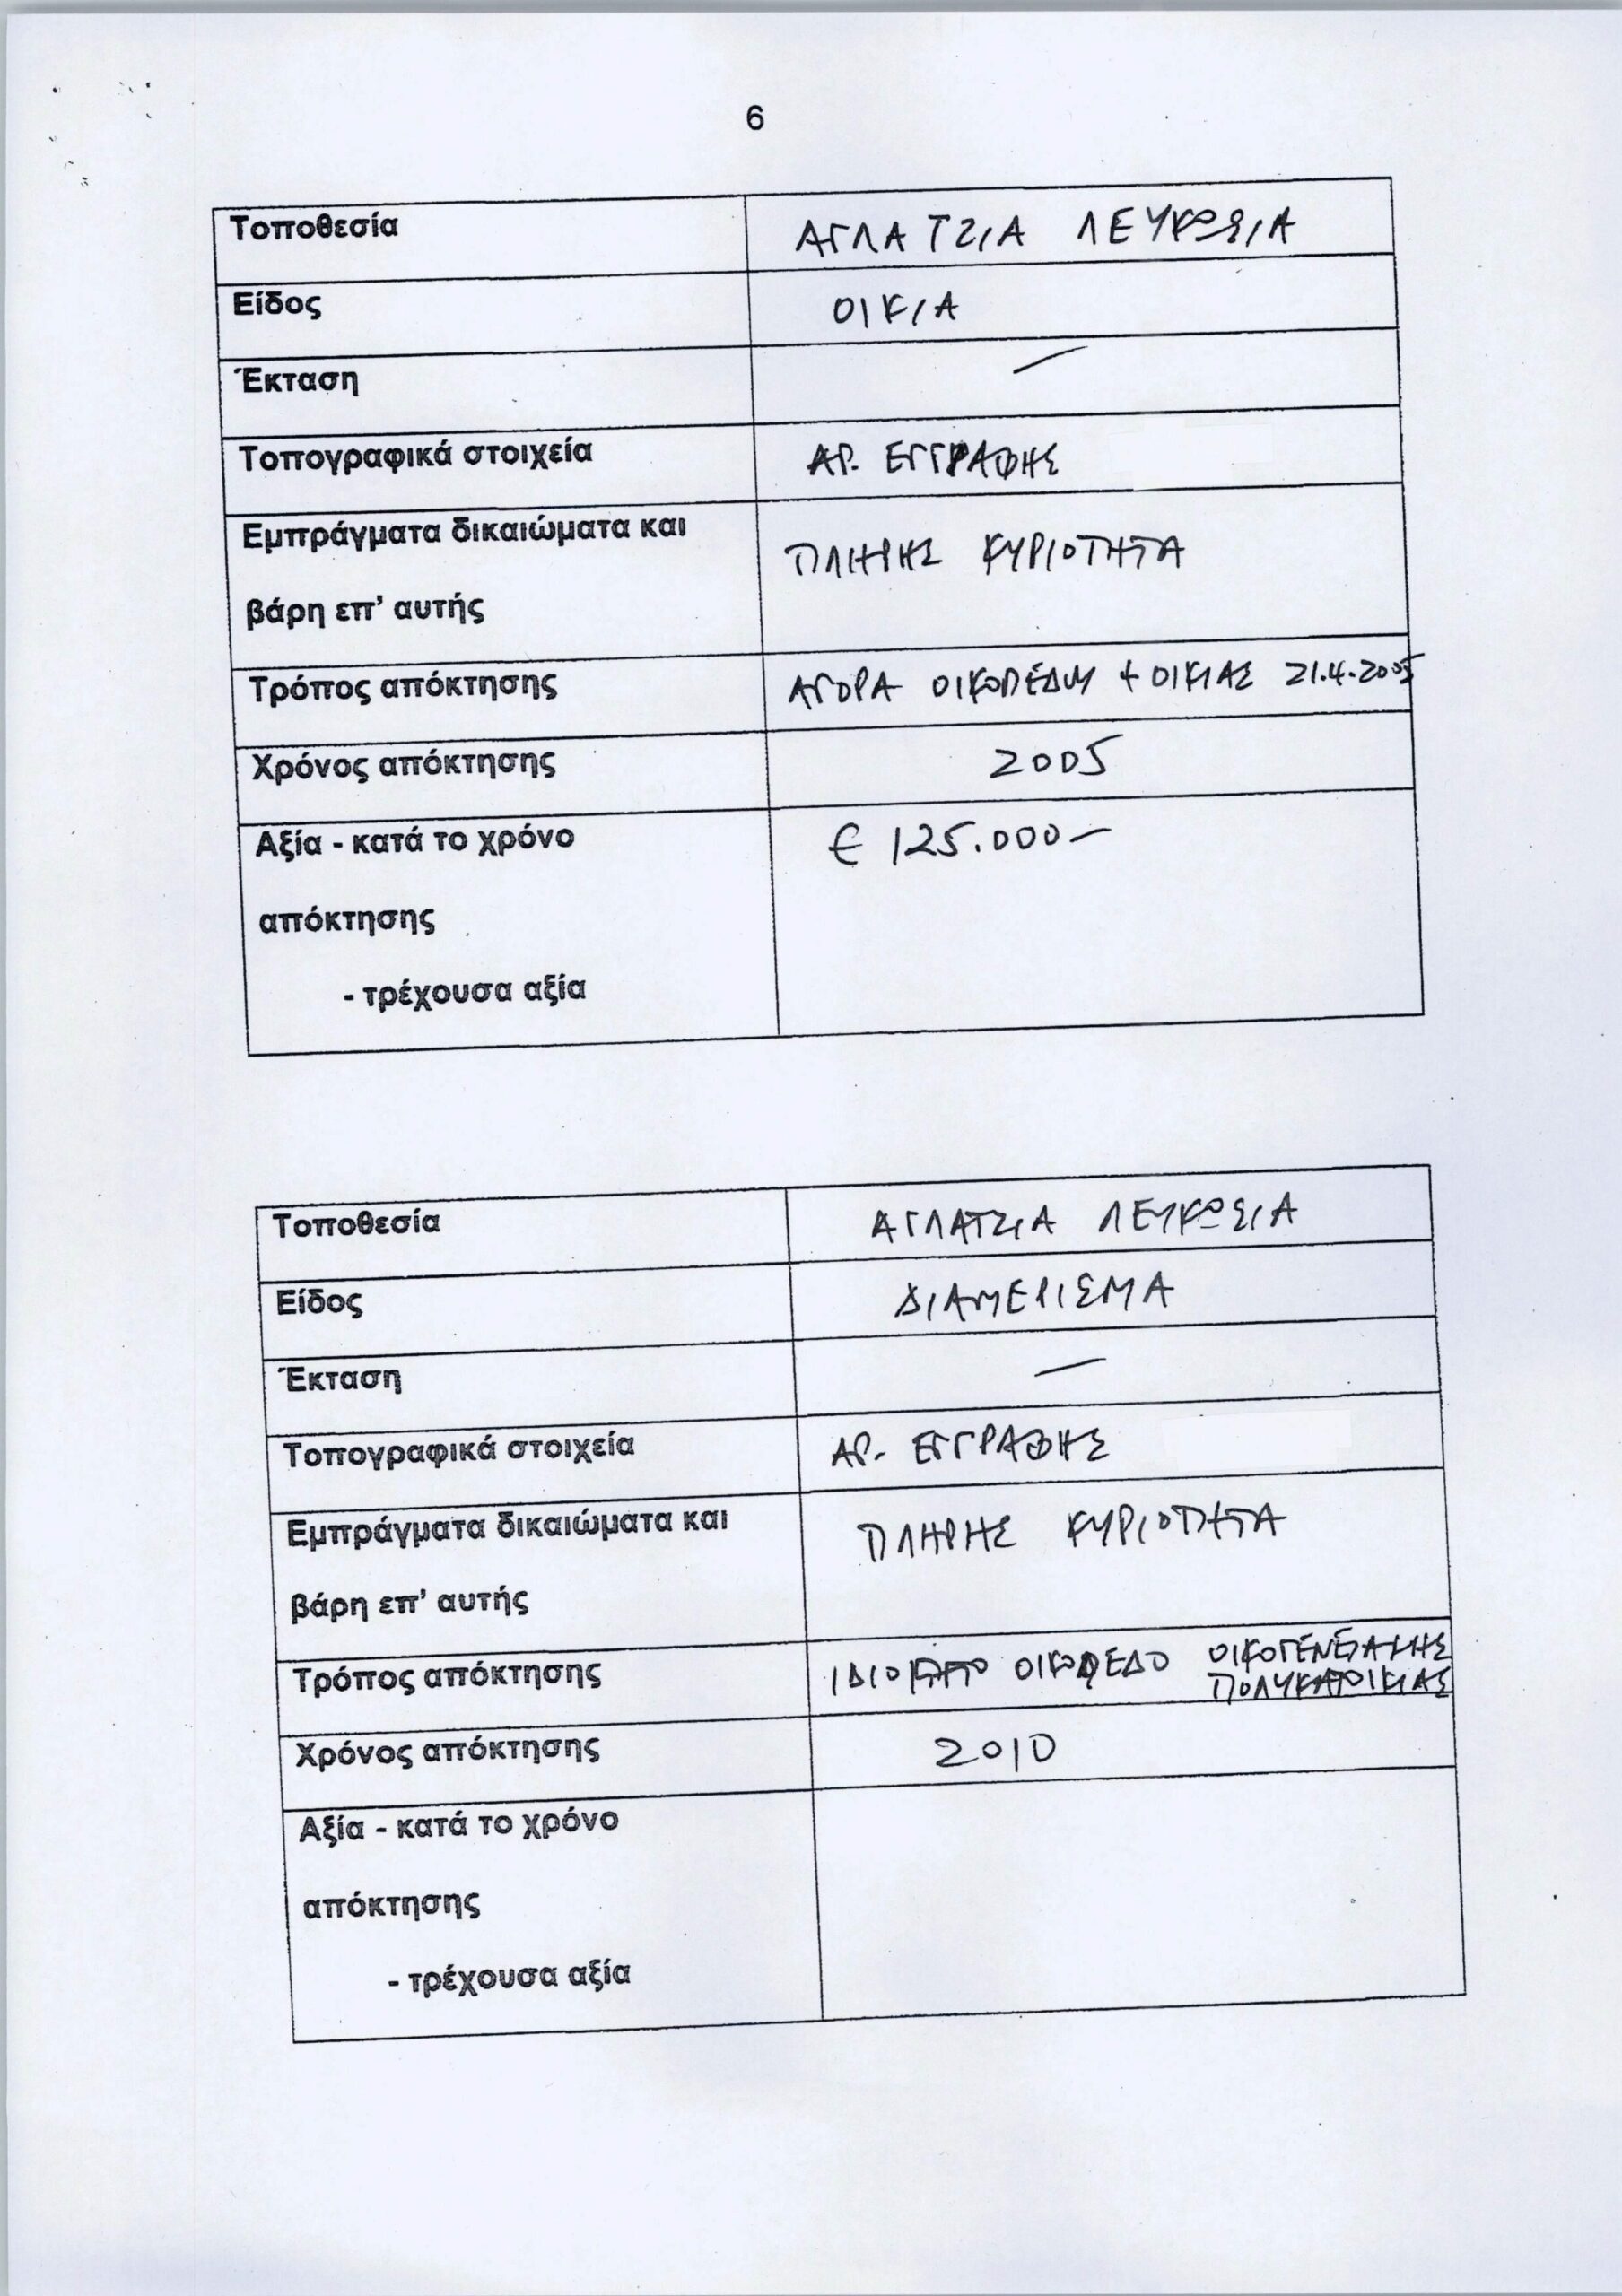 6
Τοποθεσία ΑΓΛΑΤΖΙΑ ΛΕΥΚΩΣΙΑ
Είδος ΟΙΚΙΑ
Έκταση —
Τοπογραφικά στοιχεία ΑΡ. ΕΓΓΡΑΦΗΣ
Εμπράγματα δικαιώματα και ΠΛΗΡΗΣ ΚΥΡΙΟΤΗΤΑ
βάρη επ' αυτής
Τρόπος απόκτησης ΑΓΟΡΑ ΟΙΚΟΠΕΔΟΥ + ΟΙΚΙΑΣ 21.4.2005
Χρόνος απόκτησης 2005
Αξία - κατά το χρόνο € 125.000—
απόκτησης
- τρέχουσα αξία
Τοποθεσία ΑΓΛΑΤΖΙΑ ΛΕΥΚΩΣΙΑ
Είδος ΔΙΑΜΕΡΙΣΜΑ
Έκταση —
Τοπογραφικά στοιχεία ΑΡ. ΕΓΓΡΑΦΗΣ
Εμπράγματα δικαιώματα και ΠΛΗΡΗΣ ΚΥΡΙΟΤΗΤΑ
βάρη επ' αυτής
Τρόπος απόκτησης ΟΙΚΟΠΕΔΟ ΟΙΚΟΓΕΝΕΙΑΚΗΣ
ΠΟΛΥΚΑΤΟΙΚΙΑΣ
Χρόνος απόκτησης 2010
Αξία - κατά το χρόνο
απόκτησης
- τρέχουσα αξία